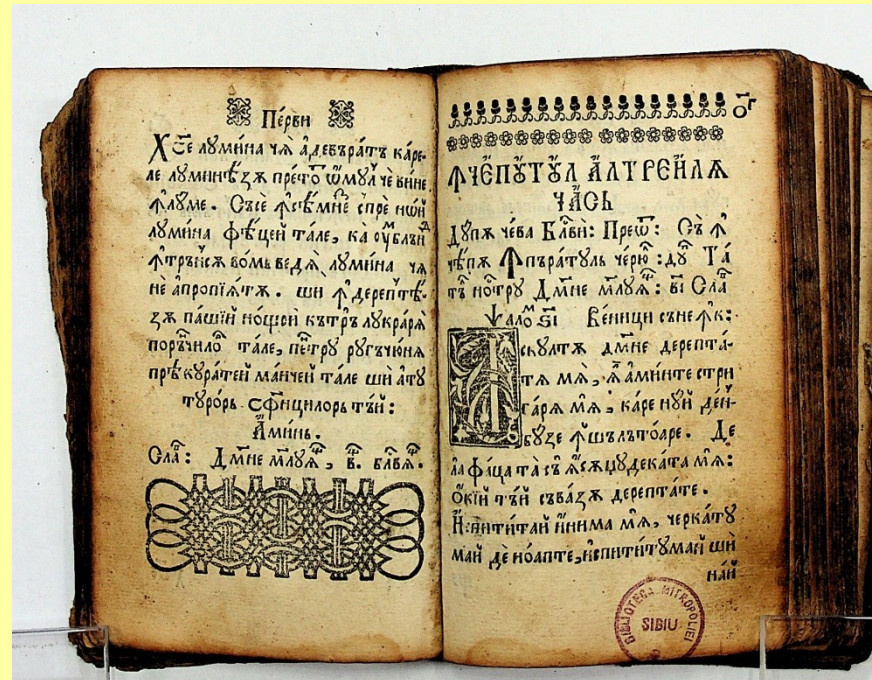 Пе́рвн
Хс҃е лꙋмина чѧ адевъра́тъ ка́ре-
ле лꙋминѣ́зѫ прето҃ ѡ҆́мꙋл че вине
ꙟ҆лꙋме. Съсе ꙟ҆сѣмне спре но́й
лꙋмина фѣцей тале, ка оу҆блъ́н
ꙟ҆трꙋ́нсѫ во́мь ведѣ̀ лꙋмина чѧ
не апропїѧтѫ. ши ꙟ҆дерептѣ-
зѫ па́шїй но́щрй кътрѫ лꙋкра́рѧ
порꙋ́нчило тале, пе́трꙋ рꙋгъчю́нѧ
прѣкꙋра́тей ма́йчей тале ши а҆тꙋ
тꙋро́рь сфн҃цилорь тъ́й:
А҆ми́нь.
Сла: Дм҃не млꙋѧ, в҃. блвѧ.
ог҃
ꙞЧЕПꙊТꙊЛ АЛТРЕЙЛѦ
ЧАСЬ
Дꙋпѫ че́ва Блви: Прео: Съ ꙟ
че́пѫ Ꙟпъра́тꙋль че́рю: дꙋ Та́
тъ но́трꙋ Дм҃не млꙋѧ: в҃і Сла
Ѱало҃ ѕ҃і Вени́ци съне ꙟк:
Аскꙋ́лтѫ дм҃не дерепта́-
тѧ мѧ̀, ꙗ аминте стри
га́рѧ мѧ, ка́ре нꙋй де́н-
бꙋ́зе ꙟшълъто́аре. Де
ла фа́ца та̀ съ ꙗ́сѫ жꙋдека́та мѧ:
О҆кїй тъ́й съва́зѫ дерепта́те.
И҆спитита́й и҆́нима мѧ, черка́тꙋ
май де но́апте, и҆спити́тꙋмай ши
на́й
BIBLIOTECA MITROPOLIEI
SIBIU